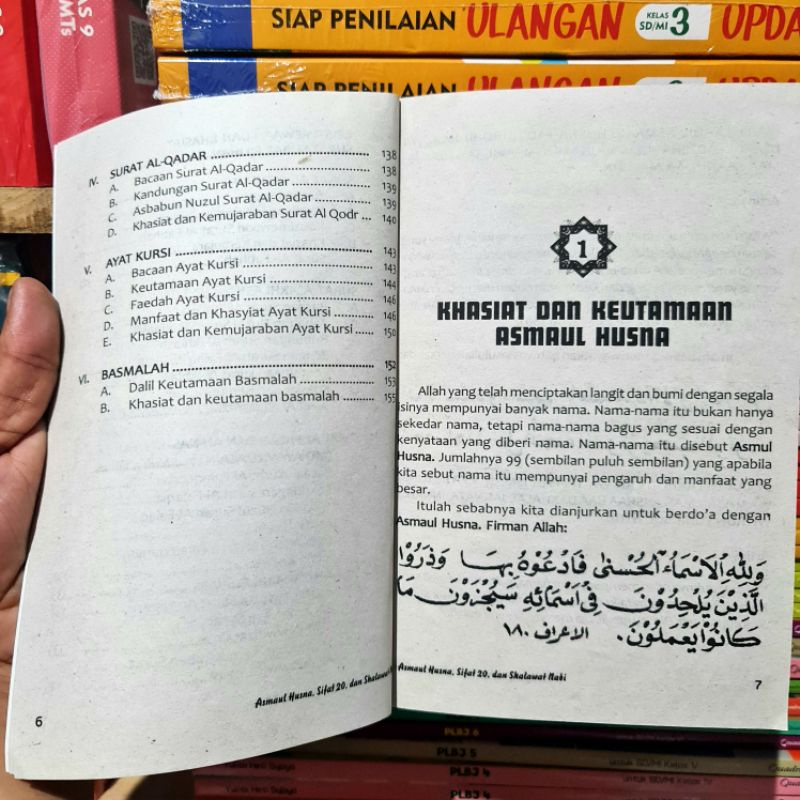 AS 9
MTs
SIAP PENILAIAN ULANGAN KELAS SD/MI 3 UPDA
SIAP PENILAIAN ULANGAN UPDA
IV. SURAT AL-QADAR ........ 138
A. Bacaan Surat Al-Qadar ........ 138
B. Kandungan Surat Al-Qadar ........ 139
C. Asbabun Nuzul Surat Al-Qadar ........ 139
D. Khasiat dan Kemujaraban Surat Al Qodr ... 140
V. AYAT KURSI ........ 143
A. Bacaan Ayat Kursi ........ 143
B. Keutamaan Ayat Kursi ........ 144
C. Faedah Ayat Kursi ........ 146
D. Manfaat dan Khasyiat Ayat Kursi ........ 146
E. Khasiat dan Kemujaraban Ayat Kursi ...... 150
VI. BASMALAH ........ 152
A. Dalil Keutamaan Basmalah ........ 153
B. Khasiat dan keutamaan basmalah ........ 155
Asmaul Husna, Sifat 20, dan Shalawat
6
1
KHASIAT DAN KEUTAMAAN
ASMAUL HUSNA
Allah yang telah menciptakan langit dan bumi dengan segala
isinya mempunyai banyak nama. Nama-nama itu bukan hanya
sekedar nama, tetapi nama-nama bagus yang sesuai dengan
kenyataan yang diberi nama. Nama-nama itu disebut Asmul
Husna. Jumlahnya 99 (sembilan puluh sembilan) yang apabila
kita sebut nama itu mempunyai pengaruh dan manfaat yang
besar.
Itulah sebabnya kita dianjurkan untuk berdo'a dengan
Asmaul Husna. Firman Allah:
وَلِلّٰهِ الْاَسْمَاۤءُ الْحُسْنٰى فَادْعُوْهُ بِهَا وَذَرُوا
الَّذِيْنَ يُلْحِدُوْنَ فِيْ اَسْمَائِهٖ سَيُجْزَوْنَ مَا
كَانُوْا يَعْمَلُوْنَ. الاعراف ١٨٠
Asmaul Husna, Sifat 20, dan Shalawat Nabi
7
PLBJ 6
PLBJ 5 untuk SD/MI Kelas V
PLBJ 4
PLBJ 4